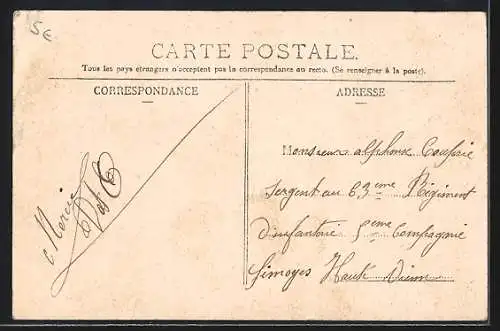 5€
CARTE POSTALE.
Tous les pays étrangers n'acceptent pas la correspondance au recto. (Se renseigner à la poste).
CORRESPONDANCE
ADRESSE
Monsieur alphonse
Sergent au 63eme Régiment
d'infanterie 5eme Compagnie
limoges Haute Vienne
Merci